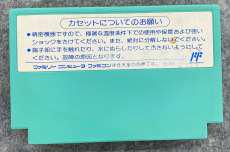 カセットについてのお願い
●精密機器ですので、極端な温度条件下での使用や保管および強い
ショックをさけてください。また、絶対に分解しないでください。
●端子部に手を触れたり、水にぬらしたりして汚さないようにして
ください。故障の原因となります。
ファミリーコンピュータ ファミコン は任天堂の商標です。